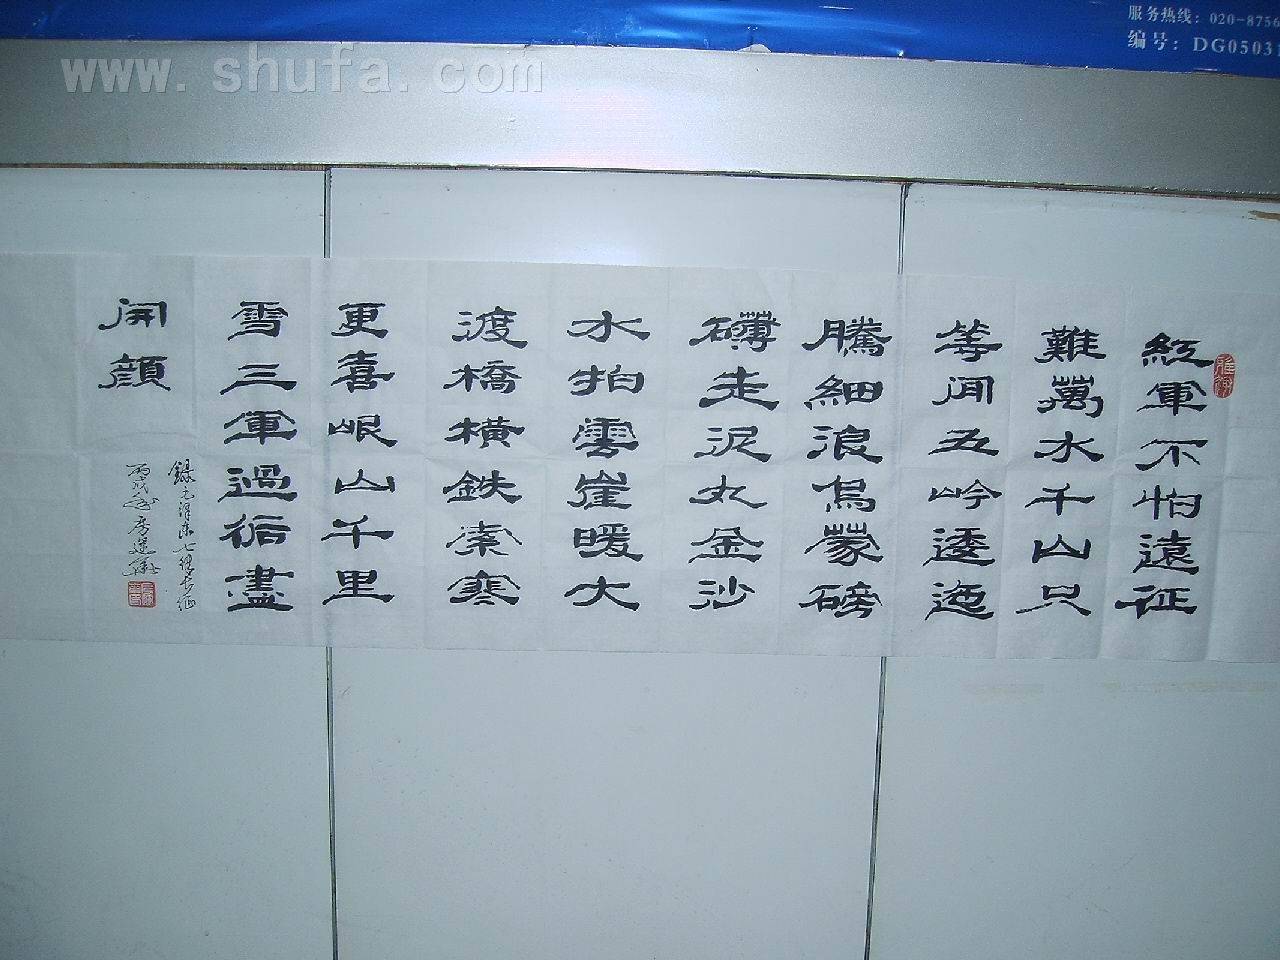 www.shufa.com
服务热线：020-8756
编号：DG0503
紅軍不怕遠征
難萬水千山只
等閒五岭逶迤
騰細浪烏蒙磅
礴走泥丸金沙
水拍雲崖暖大
渡橋橫鉄索寒
更喜岷山千里
雪三軍過後盡
開顏
錄毛澤東七律長征
丙戌